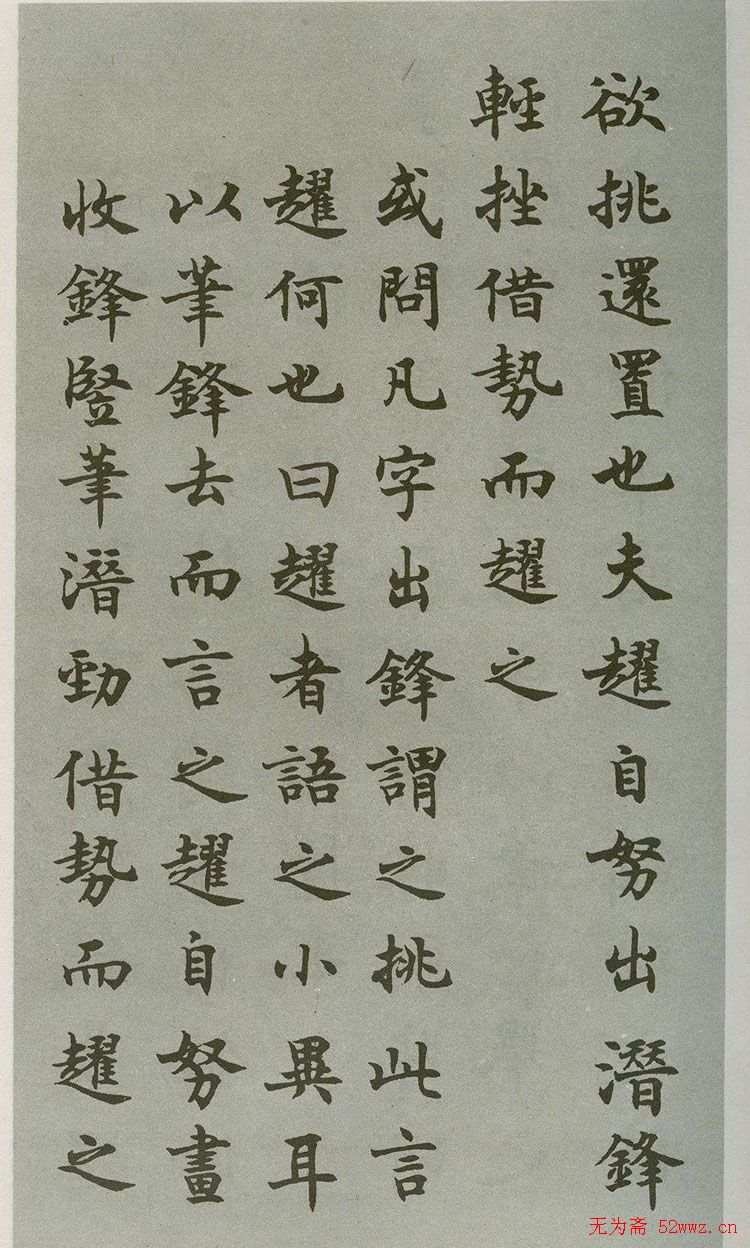 欲挑還置也夫趯自努出潛鋒
輕挫借勢而趯之
或問凡字出鋒謂之挑此言
趯何也曰趯者語之小異耳
以筆鋒去而言之趯自努畫
收鋒竪筆潛勁借勢而趯之
无为斋 52wwz.cn